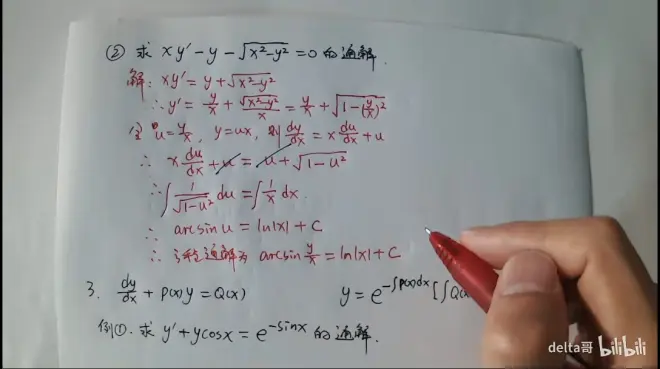 ② 求 xy' - y - √(x²-y²) = 0 的通解.
解: xy' = y + √(x²-y²)
∴ y' = y/x + √(x²-y²)/x = y/x + √(1-(y/x)²)
令 u = y/x, y = ux, 则 dy/dx = x du/dx + u
∴ x du/dx + u = u + √(1-u²)
∴ ∫ 1/√(1-u²) du = ∫ 1/x dx.
∴ arcsin u = ln|x| + C
∴ 通解为 arcsin y/x = ln|x| + C
3. dy/dx + P(x)y = Q(x) y = e^(-∫p(x)dx) [∫Q(x
例①. 求 y' + ycosx = e^(-sinx) 的通解.
delta哥 bilibili